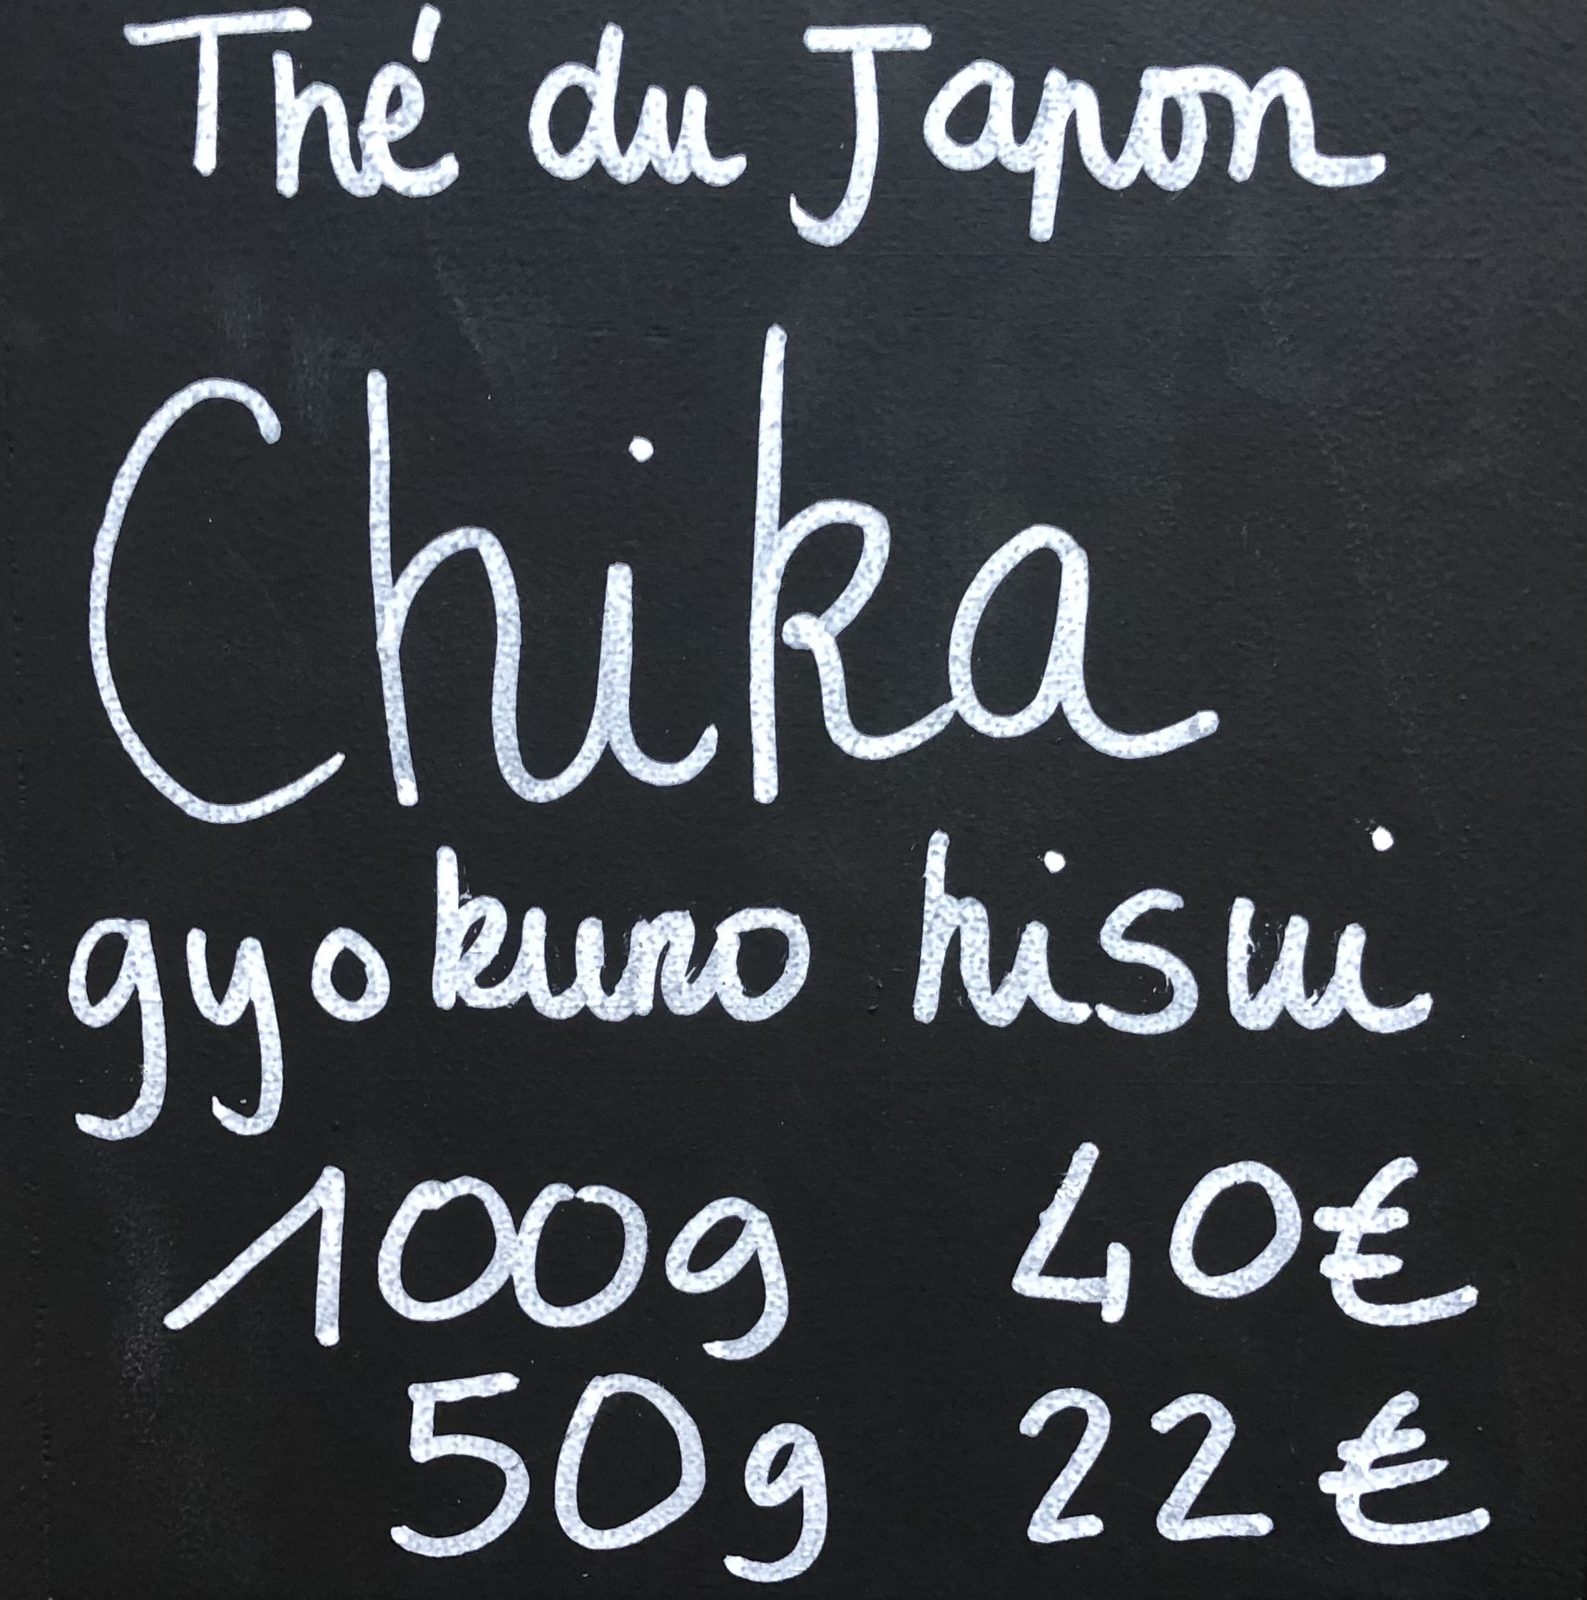 Thé du Japon
Chika
gyokuro hisui
100g 40€
50g 22€